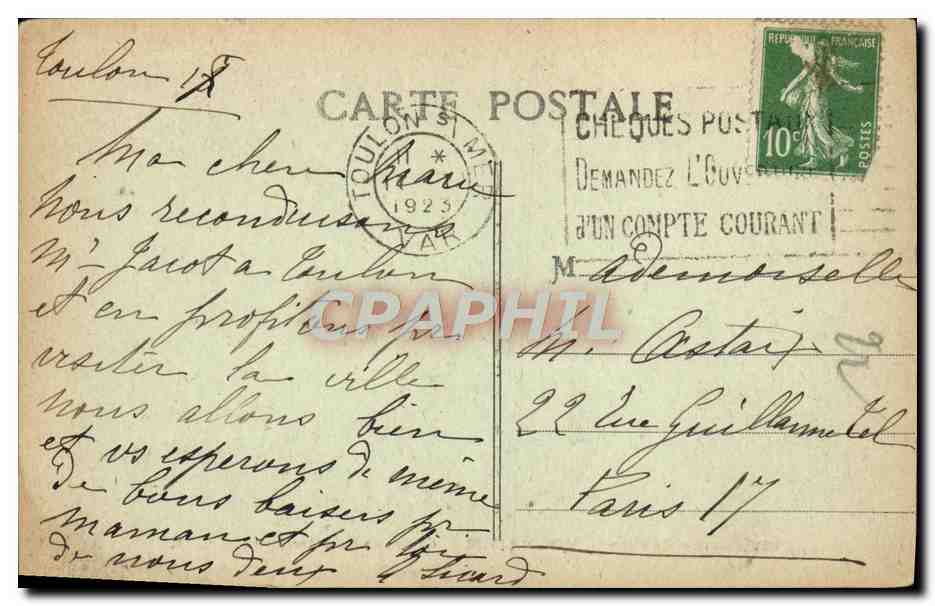 Toulon
CARTE POSTALE
REPUBLIQUE FRANÇAISE
10c
POSTES
TOULON S MER
11 *
1923
VAR
CHEQUES POSTAUX
DEMANDEZ L'OUVERTURE
d'UN COMPTE COURANT
Ma chere Marie
Nous reconduisons
Mr Jacot a Toulon
et en profitons pr
visiter la ville
nous allons bien
et vs esperons de même
De bons baisers pr
maman et pr toi
de nous deux A Sicard
Mademoiselle
M. Astaix
22 rue Guillaume Tel
Paris 17
CPAPHIL